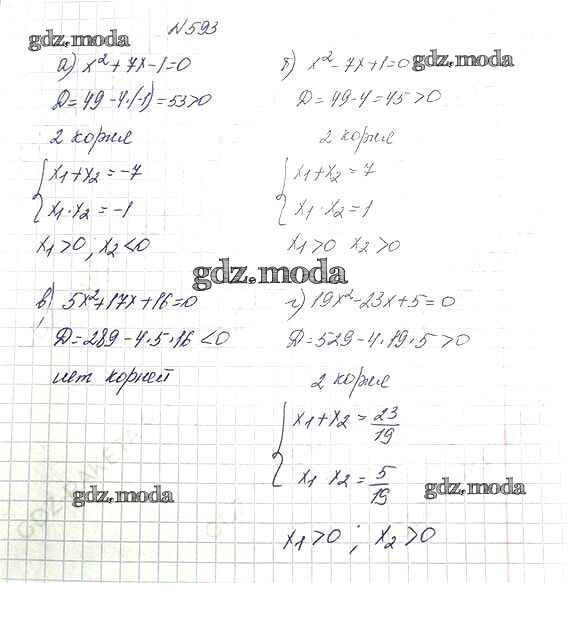 №593
gdz.moda
а) x²+7x-1=0
D=49-4·(-1)=53>0
2 корня
x₁+x₂=-7
x₁·x₂=-1
x₁>0; x₂<0
б) x²-7x+1=0
gdz.moda
D=49-4=45>0
2 корня
x₁+x₂=7
x₁·x₂=1
x₁>0 x₂>0
gdz.moda
в) 5x²+17x+16=0
D=289-4·5·16<0
нет корней
gdz.moda
г) 19x²-23x+5=0
D=529-4·19·5>0
2 корня
x₁+x₂=23/19
x₁·x₂=5/19
gdz.moda
x₁>0; x₂>0